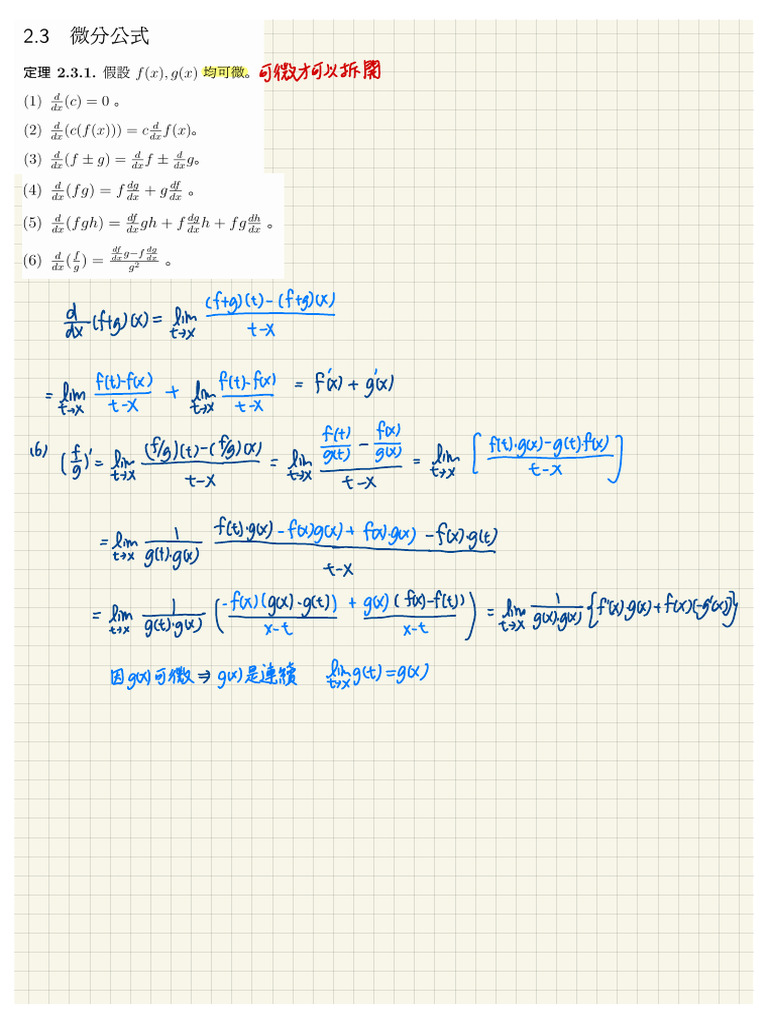 2.3 微分公式
定理 2.3.1. 假設 f(x), g(x) 均可微。可微才可以拆開
(1) d/dx (c) = 0 。
(2) d/dx (c(f(x))) = c d/dx f(x)。
(3) d/dx (f ± g) = d/dx f ± d/dx g。
(4) d/dx (fg) = f dg/dx + g df/dx 。
(5) d/dx (fgh) = df/dx gh + f dg/dx h + fg dh/dx 。
(6) d/dx (f/g) = (df/dx g − f dg/dx)/g² 。
d/dx (f+g)(x) = lim_{t→x} ((f+g)(t) − (f+g)(x))/(t−x)
= lim_{t→x} (f(t)−f(x))/(t−x) + lim_{t→x} (f(t)−f(x))/(t−x) = f'(x) + g'(x)
(6) (f/g)' = lim_{t→x} ((f/g)(t) − (f/g)(x))/(t−x) = lim_{t→x} (f(t)/g(t) − f(x)/g(x))/(t−x) = lim_{t→x} [(f(t)·g(x) − g(t)·f(x))/(t−x)]
= lim_{t→x} 1/(g(t)·g(x)) (f(t)·g(x) − f(x)g(x) + f(x)·g(x) − f(x)·g(t))/(t−x)
= lim_{t→x} 1/(g(t)·g(x)) (−f(x)(g(x)−g(t))/(x−t) + g(x)(f(x)−f(t))/(x−t)) = lim_{t→x} 1/(g(x)·g(x)) {f'(x)·g(x) + f(x)(−g'(x))}
因g(x)可微 ⇒ g(x)是連續 lim_{t→x} g(t) = g(x)